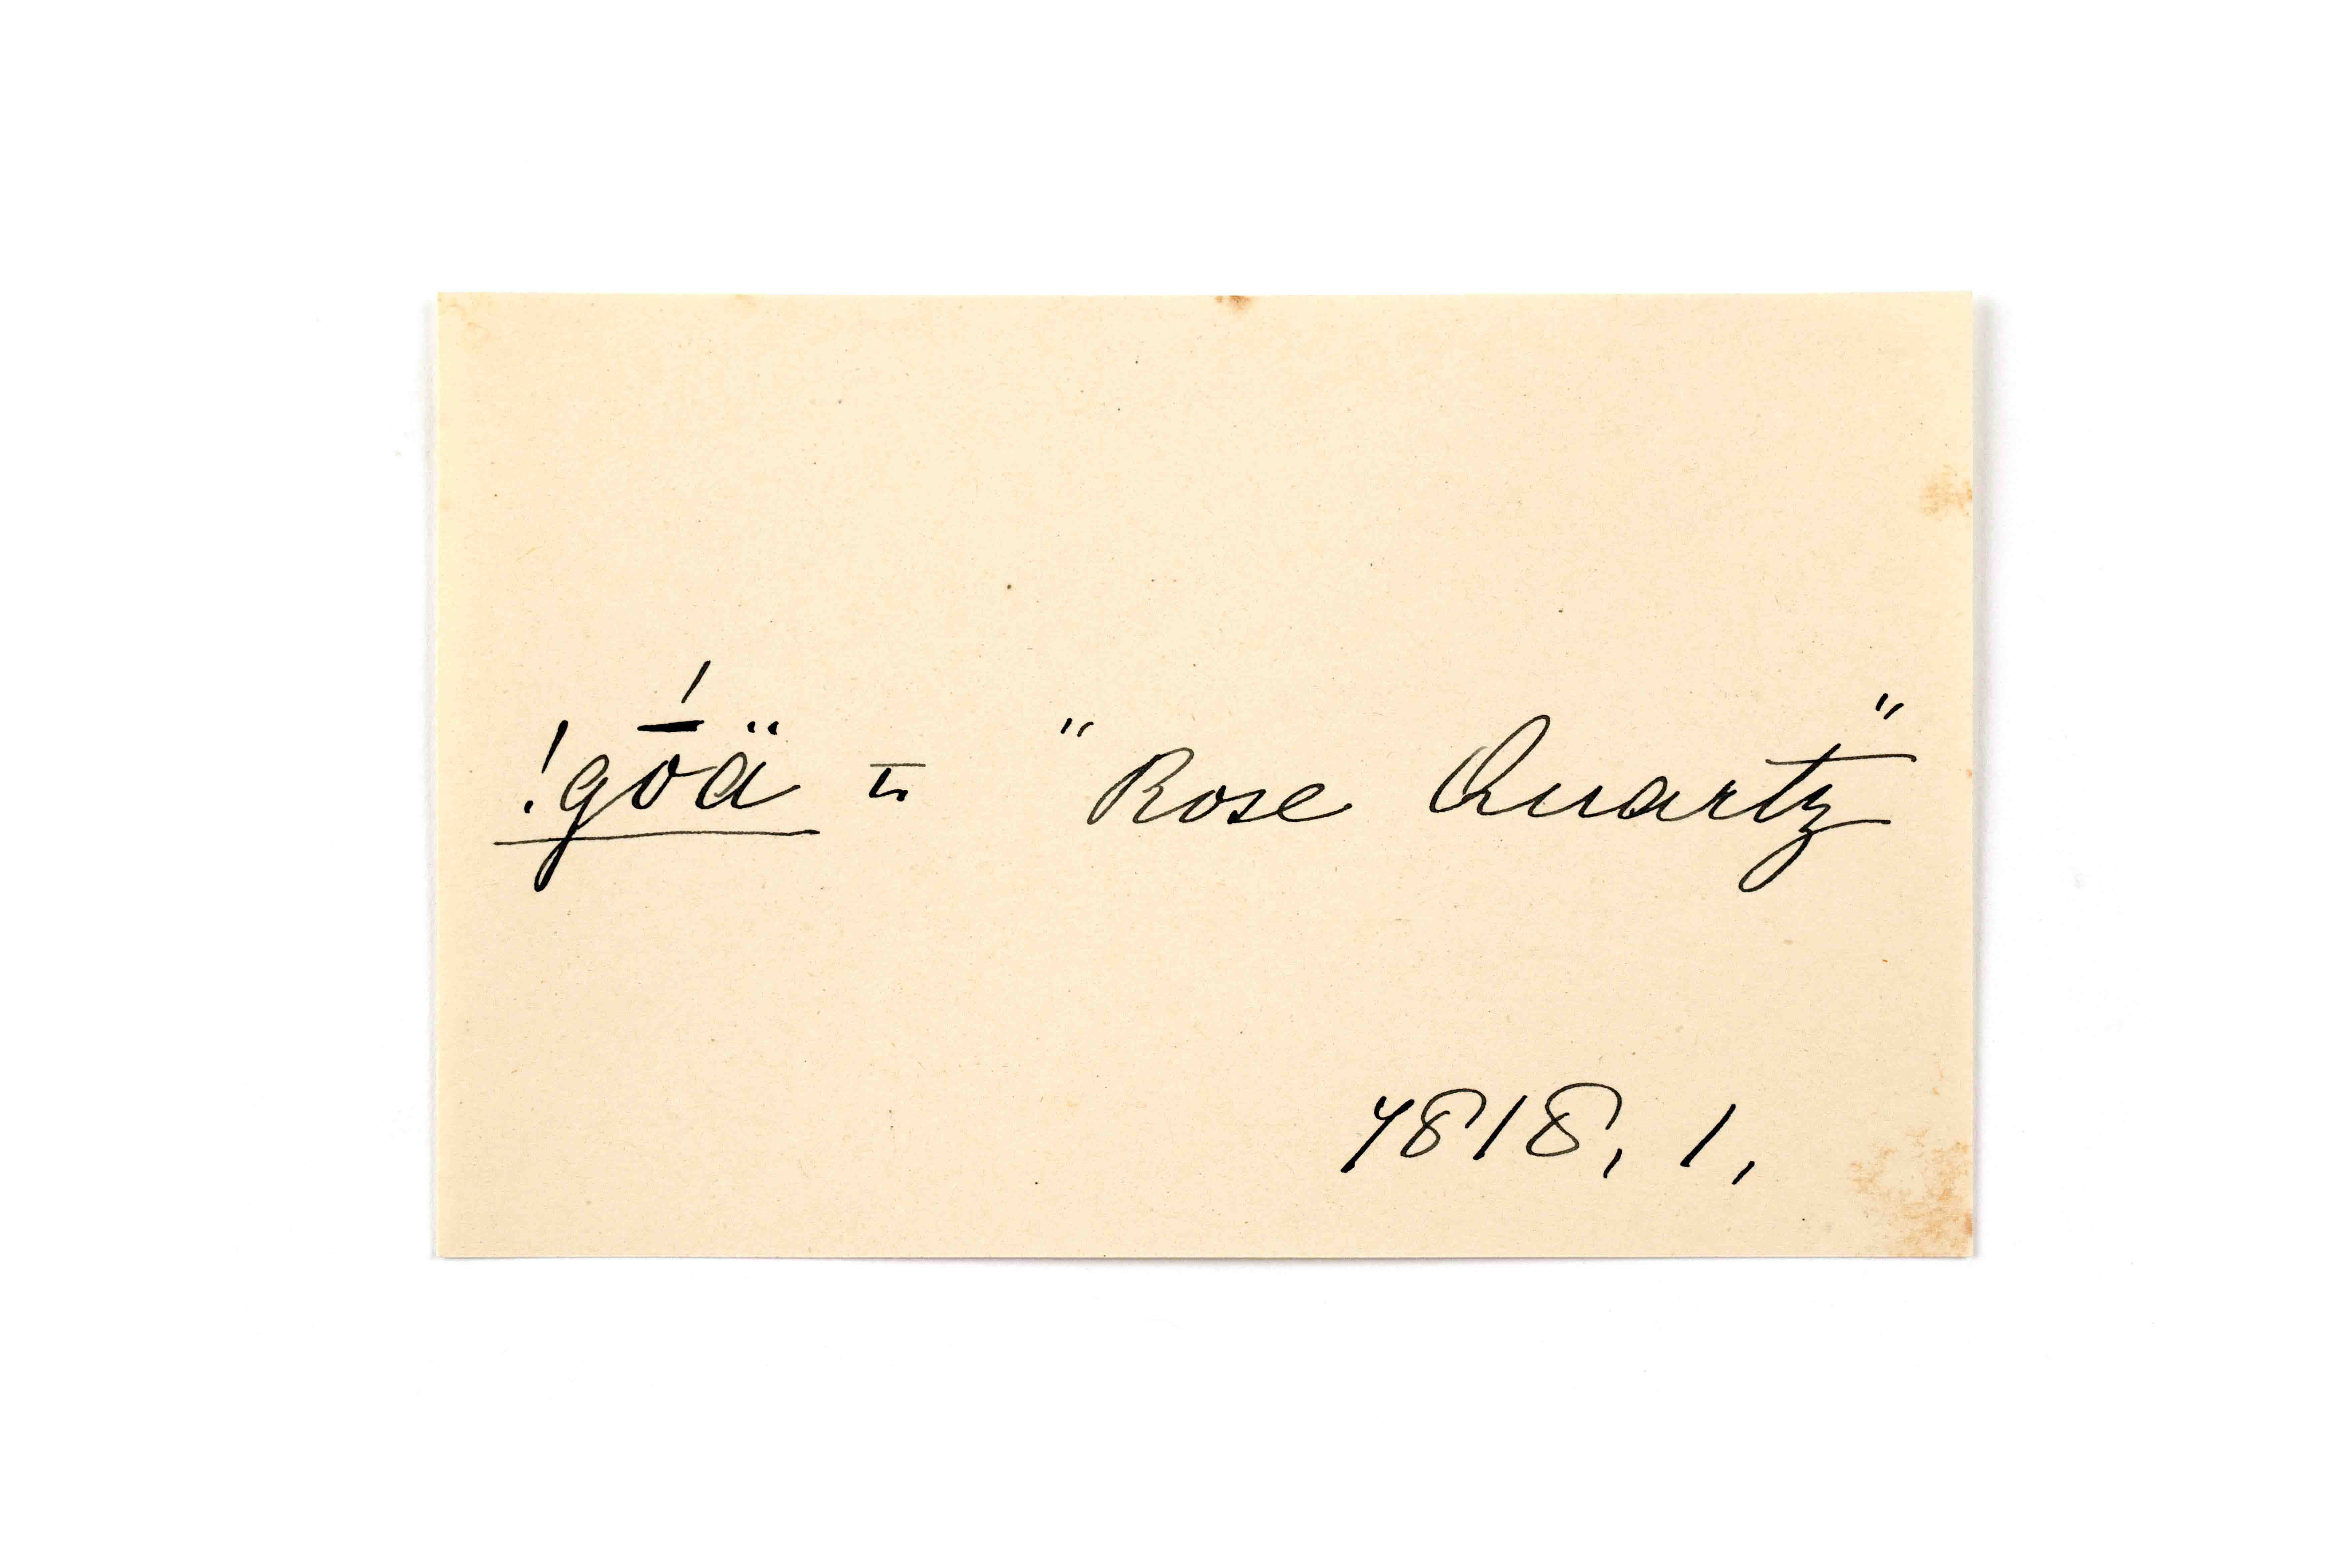 !gṓä = "Rose Quartz"
7818, 1,